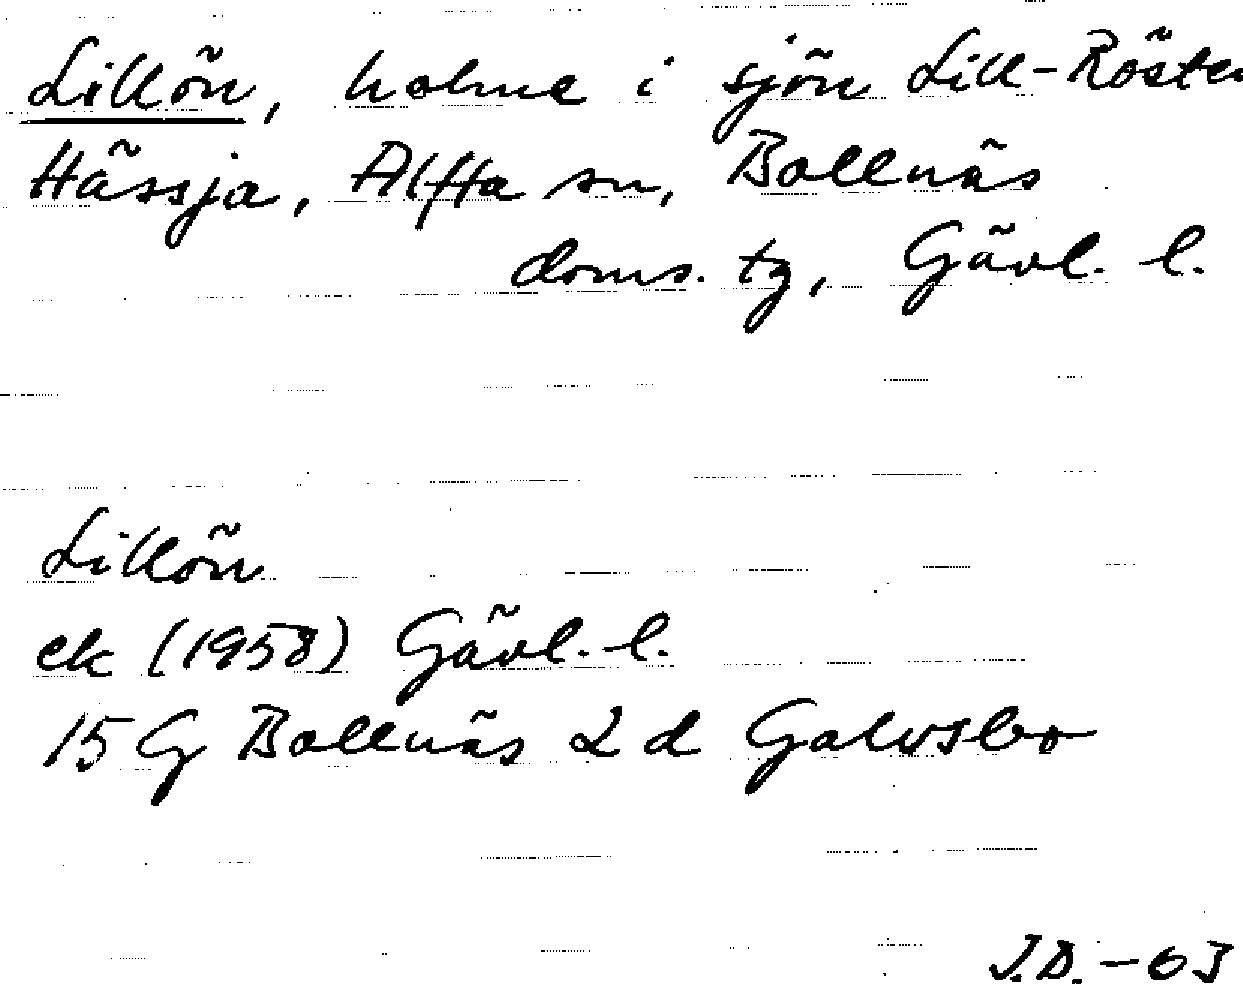 Lillön, holme i sjön Lill-Rösten
Hässja, Alfta sn, Bollnäs
doms. tg, Gävl. l.
Lillön
ek (1958) Gävl. l.
15 G Bollnäs 2 d Galvsbo
J.D. - 63